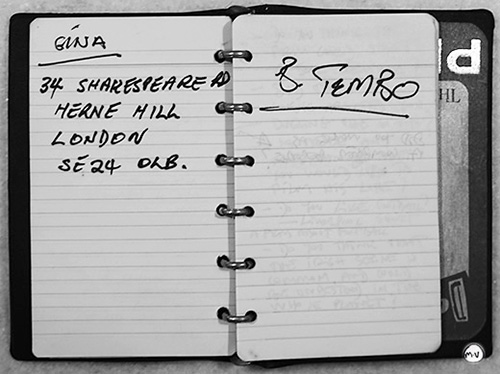 GINA
34 SHAKESPEARE RD
HERNE HILL
LONDON
SE24 OLB.
B TEMBO
HL
MV